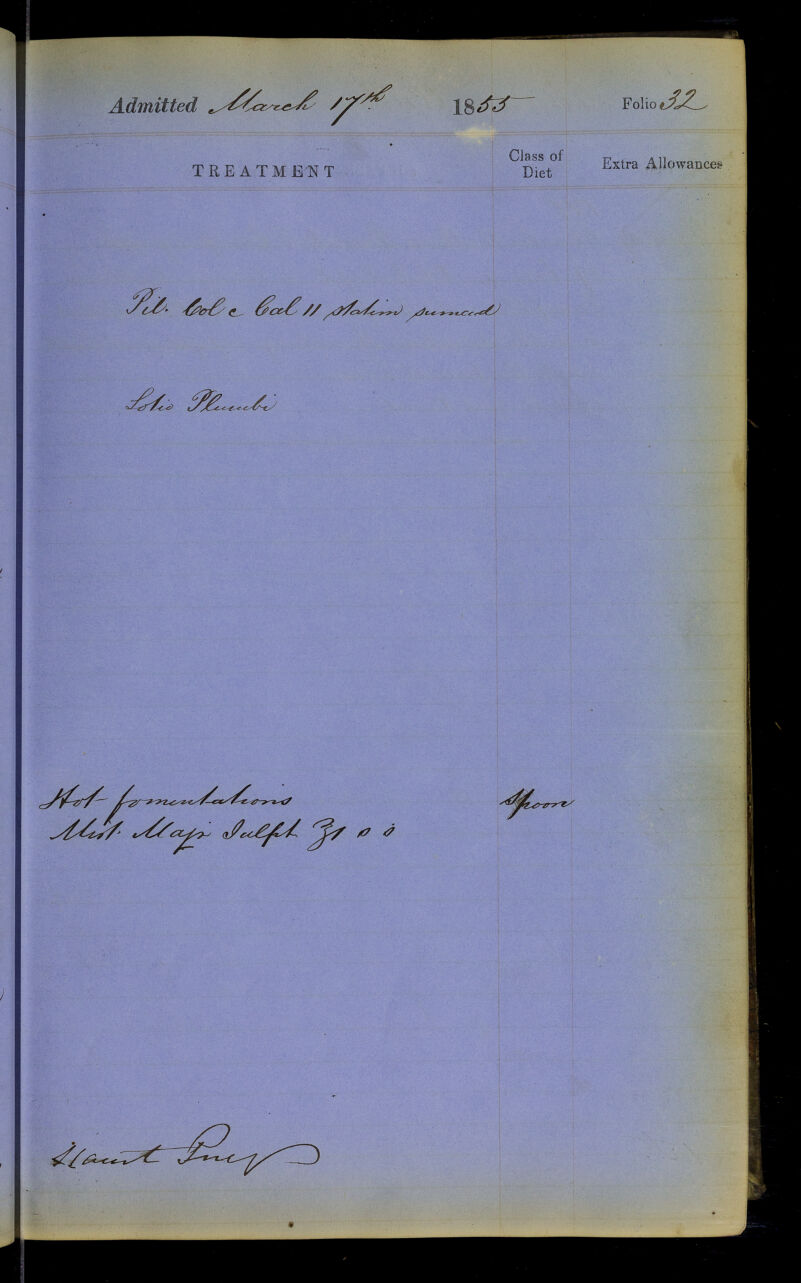 Admitted March 17th 1855 Folio 32
TREATMENT Class of Diet Extra Allowances
Pil. Col c Cal 11 statim sumend
Lotio Plumbi
Hot fomentations Spoon
Mist. Magn Sulph ℥1 s s
Haust Purg